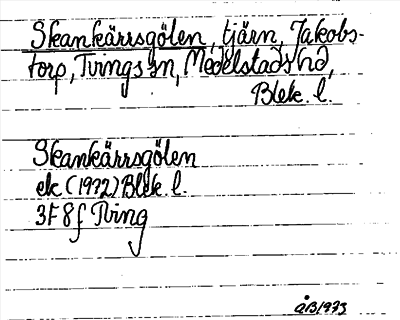 Skankärrsgölen, tjärn, Jakobs-
torp, Tvings sn, Medelstads hd,
Blek. l.
Skankärrsgölen
ek (1972) Blek l.
3F 8f Tving
ÅB 1973